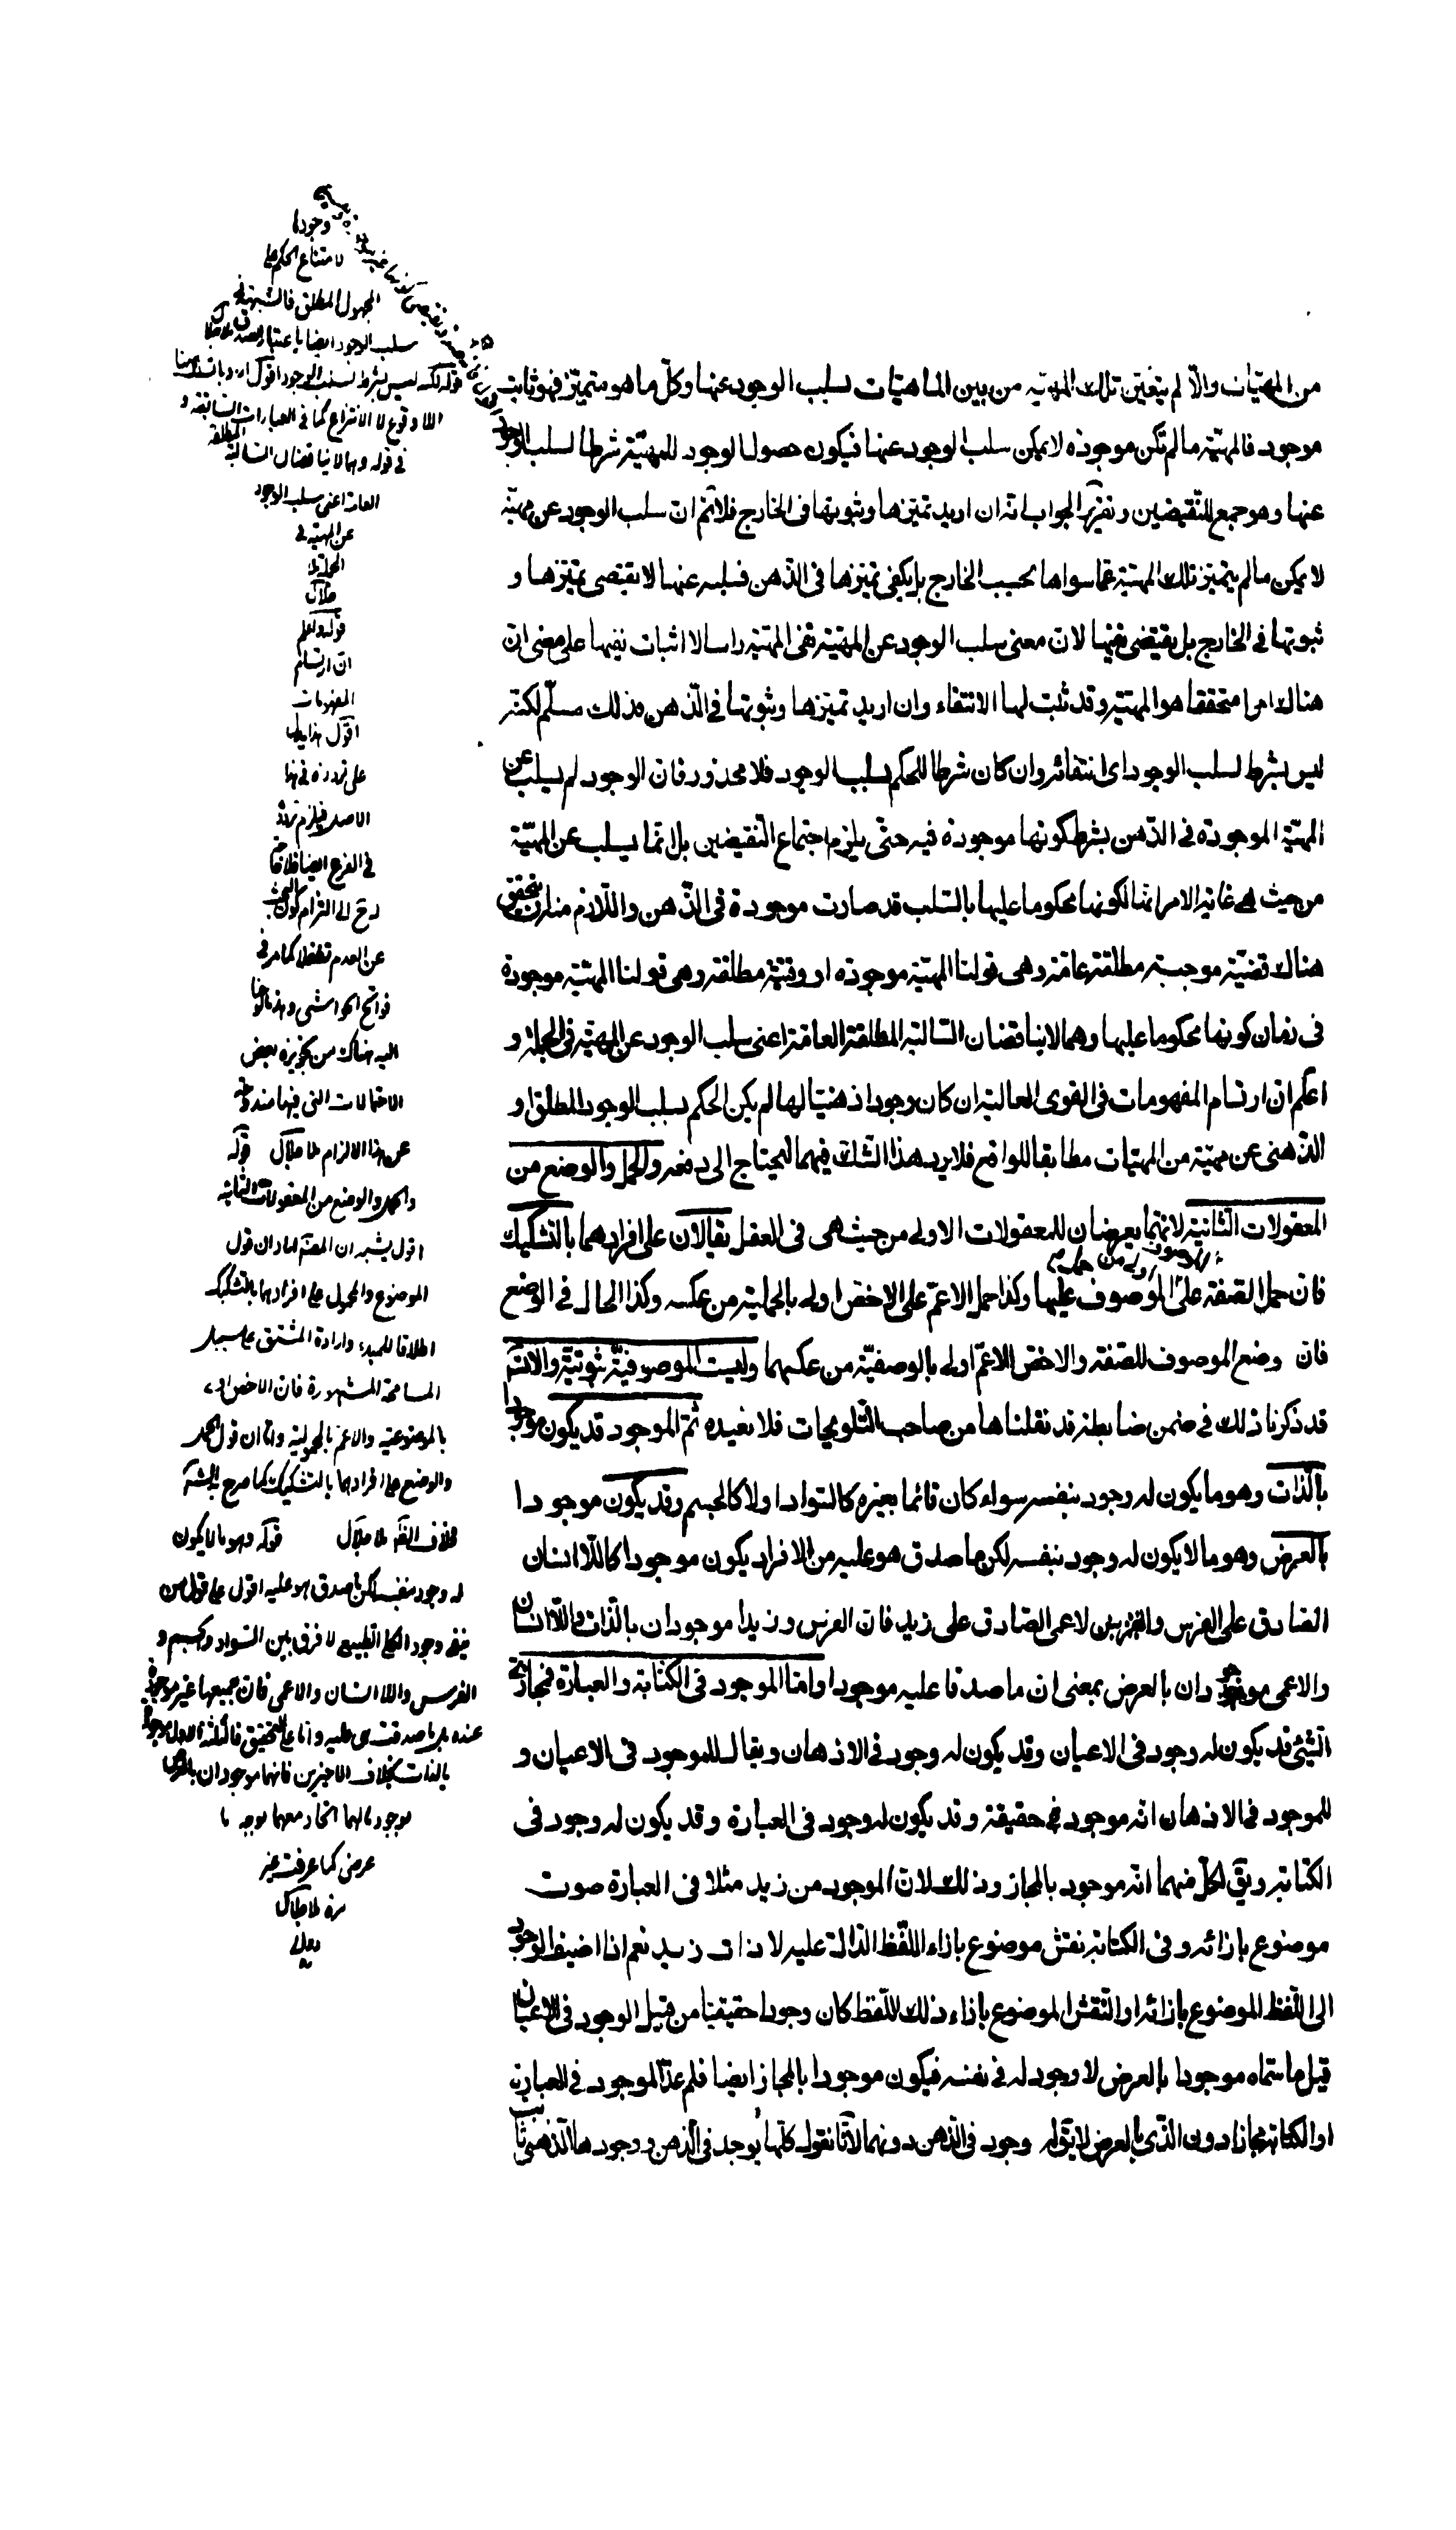 من المهيّات والّا لم يتعيّن تلك المهيّة من بين الماهيّات لسلب الوجود عنها وكلّ ما هو متميّز فهو ثابت
موجود فالمهيّة ما لم تكن موجودة لا يمكن سلب الوجود عنها فيكون حصول الوجود للمهيّة شرطا لسلب الوجود
عنها وهو جمع للنّقيضين وتقرير الجواب انّه ان اريد تميّزها وثبوتها فى الخارج فلانم انّ سلب الوجود عن مهيّة
لا يمكن ما لم يتميّز تلك المهيّة عمّا سواها بحسب الخارج بل يكفى تميّزها فى الذّهن فسلبه عنها لا يقتضى تميّزها و
ثبوتها فى الخارج بل يقتضى نفيها لانّ معنى سلب الوجود عن المهيّة نفى المهيّة راسا لا اثبات نفيها على معنى انّ
هناك امرا متحققا هو المهيّة وقد ثبت لها الانتفاء وان اريد تميّزها وثبوتها فى الذّهن فذلك مسلّم لكنّه
ليس بشرط لسلب الوجود اى انتفائه وان كان شرطا للحكم بسلب الوجود فلا محذور فان الوجود لم يسلب عن
المهيّة الموجودة فى الذّهن بشرط كونها موجودة فيه حتّى يلزم اجتماع النّقيضين بل انّما يسلب عن المهيّة
من حيث هى غاية الامر انّها لكونها محكوما عليها بالسّلب قد صارت موجودة فى الذّهن واللّازم منه ان يتحقق
هناك قضيّة موجبة مطلقة عامّة وهى قولنا المهيّة موجودة او وقتيّة مطلقة وهى قولنا المهيّة موجودة
فى زمان كونها محكوما عليها وهما لا يناقضان السّالبة المطلقة العامّة اعنى سلب الوجود عن المهيّة فى الجملة و
اعلم ان ارتسام المفهومات فى القوى العالية ان كان وجودا ذهنيّا لها لم يكن الحكم بسلب الوجود المطلق او
الذّهنى عن مهيّة من المهيّات مطابقا للواقع فلا يرد هذا الشّك فيهما ليحتاج الى دفعه والحمل والوضع من
المعقولات الثّانية لانّهما يعرضان للمعقولات الاولى من حيث هى فى العقل يقالان على افرادهما بالتشكيك
فان حمل الصّفة على الموصوف عليها وكذا حمل الاعمّ على الاخصّ اولى بالحمليّة من عكسه وكذا الحال فى الوضع
فان وضع الموصوف للصّفة والاخصّ للاعمّ اولى بالوصفيّة من عكسهما وليست الموصوفيّة ثبوتيّة والّا تسلّسل
قد ذكرنا ذلك فى ضمن ضابطة قد نقلناها من صاحب التّلويحات فلا نعيده ثمّ الموجود قد يكون موجودا
بالذّات وهو ما يكون له وجود بنفسه سواء كان قائما بغيره كالسّواد او لا كالجسم وقد يكون موجودا
بالعرض وهو ما لا يكون له وجود بنفسه لكن ما صدق هو عليه من الافراد يكون موجودا كاللّا انسان
الصّادق على الفرس والاعمى الصّادق على زيد فان الفرس وزيدا موجودان بالذّات واللّا انسان
والاعمى موجودان بالعرض بمعنى ان ما صدقا عليه موجود وامّا الموجود فى الكتابة والعبارة فمجازىّ
الشّيئ قد يكون له وجود فى الاعيان وقد يكون له وجود فى الاذهان ويقال للموجود فى الاعيان و
للموجود فى الاذهان انّه موجود حقيقة وقد يكون له وجود فى العبارة وقد يكون له وجود فى
الكتابة ويق لكلّ منهما انّه موجود بالمجاز وذلك لانّ الموجود من زيد مثلا فى العبارة صوت
موضوع بازائه وفى الكتابة نقش موضوع بازاء اللّفظ الدّال عليه لا ذات زيد نعم اذا اضيف الوجود
الى اللّفظ الموضوع بازائه او النّقش الموضوع بازاء ذلك اللّفظ كان وجودا حقيقيّا من قبيل الوجود فى الاعيان
قيل ما سمّاه موجودا بالعرض لا وجود له فى نفسه فيكون موجودا بالمجاز ايضا فلم عدّ الموجود فى العبارة
او الكتابة مجازا دون الذّى بالعرض لا يق له وجود فى الذّهن دونهما لانّا نقول كلّها يوجد فى الذّهن ووجودها الذّهنى
وجودها
لامتناع الحكم على
المجهول المطلق فالشبهة فى
سلب الوجود ايضا باعتبار
قوله لكنه ليس بشرط لسلب الوجود اقول اراد
اللاوقوع لا الانتزاع كما فى العبارات السابقة و
فى قوله وهما لا يناقضان السالبة المطلقة
العامة اعنى سلب الوجود
عن المهية فى
الجملة
قوله واعلم
ان ارتسام
المفهومات
اقول هذا
على تردده فى هذا
الاصل فيلزم تردده
فى الفرع ايضا
عن العدم كما مر فى
فواتح الحواشى
اليه هناك من تجويزه بعض
الاحتمالات التى فيها مندوحة
عن هذا الالزام قوله
والحمل والوضع من المعقولات الثانية
اقول يشبه ان المصنف اراد ان قول
الموضوع والمحمول على افرادهما بالتشكيك
اطلاقا للمبدء وارادة المشتق على سبيل
المسامحة المشهورة فان الاخص اولى
بالموضوعية والاعم بالمحمولية واما ان قول الحمل
والوضع على افرادهما بالتشكيك كما صرح به الشارح
خلاف الظاهر قوله وهو ما لا يكون
له وجود بنفسه لكن ما صدق هو عليه اقول على قول من
ينفى وجود الكلى الطبيعى لا فرق بين السواد والجسم و
الفرس واللاانسان والاعمى فان جميعها غير موجودة
عنده بل ما صدقت هى عليه واما على التحقيق فالثلثة الاول موجودة
بالذات بخلاف الاخيرين فانهما موجودان بالعرض
موجود لهما اتحاد معهما بوجه ما
عرضى كما عرفت غير
مرة